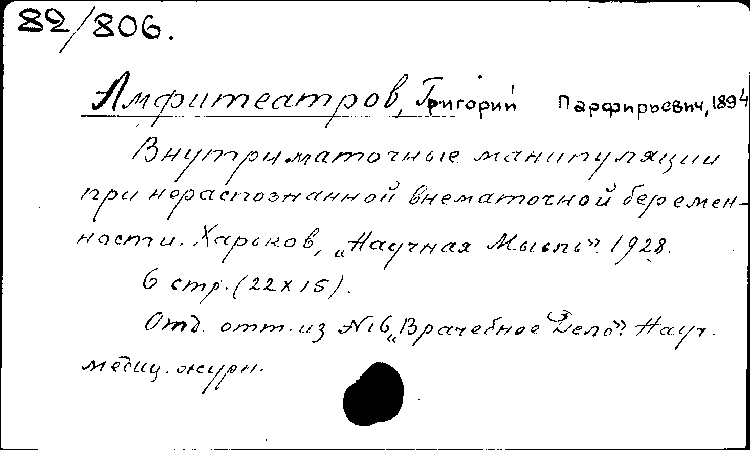 82/806.
Амфитеатров, Григорий Парфирьевич, 1894
Внутриматочные манипуляции
при нераспознанной внематочной беремен-
ности. Харьков, „Научная Мысль“. 1928.
6 стр. (22x15).
Отд. отт. из №16 „Врачебное Дело“. Науч.
медиц. журн.